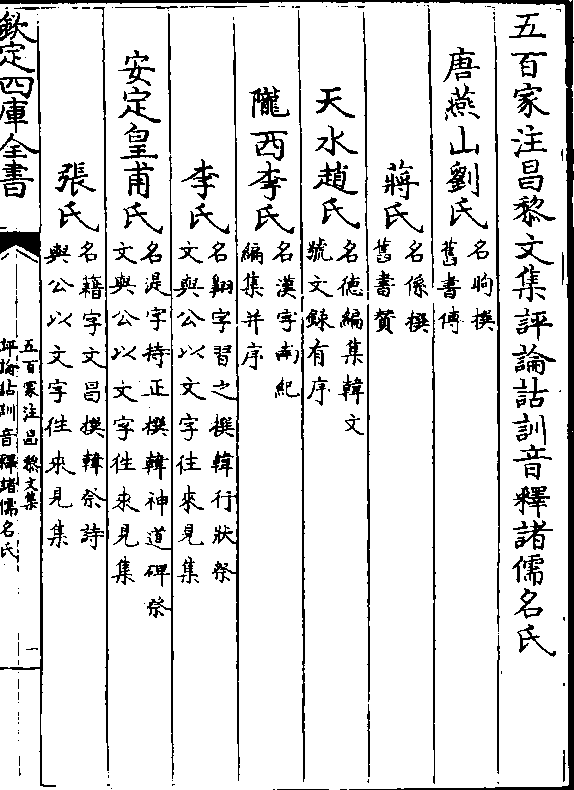 五百家注昌黎文集評論詁訓音釋諸儒名氏
唐燕山劉氏名昫撰
舊書傳
蔣氏名係撰
舊書贊
天水趙氏名德編集韓文
號文録有序
隴西李氏名漢字南紀
編集并序
李氏名翺字習之撰韓行狀祭
文與公以文字徃來見集
安定皇甫氏名湜字持正撰韓神道碑祭
文與公以文字徃來見集
張氏名籍字文昌撰韓祭詩
與公以文字徃來見集
欽定四庫全書
五百家注昌黎文集
評論詁訓音釋諸儒名氏
一